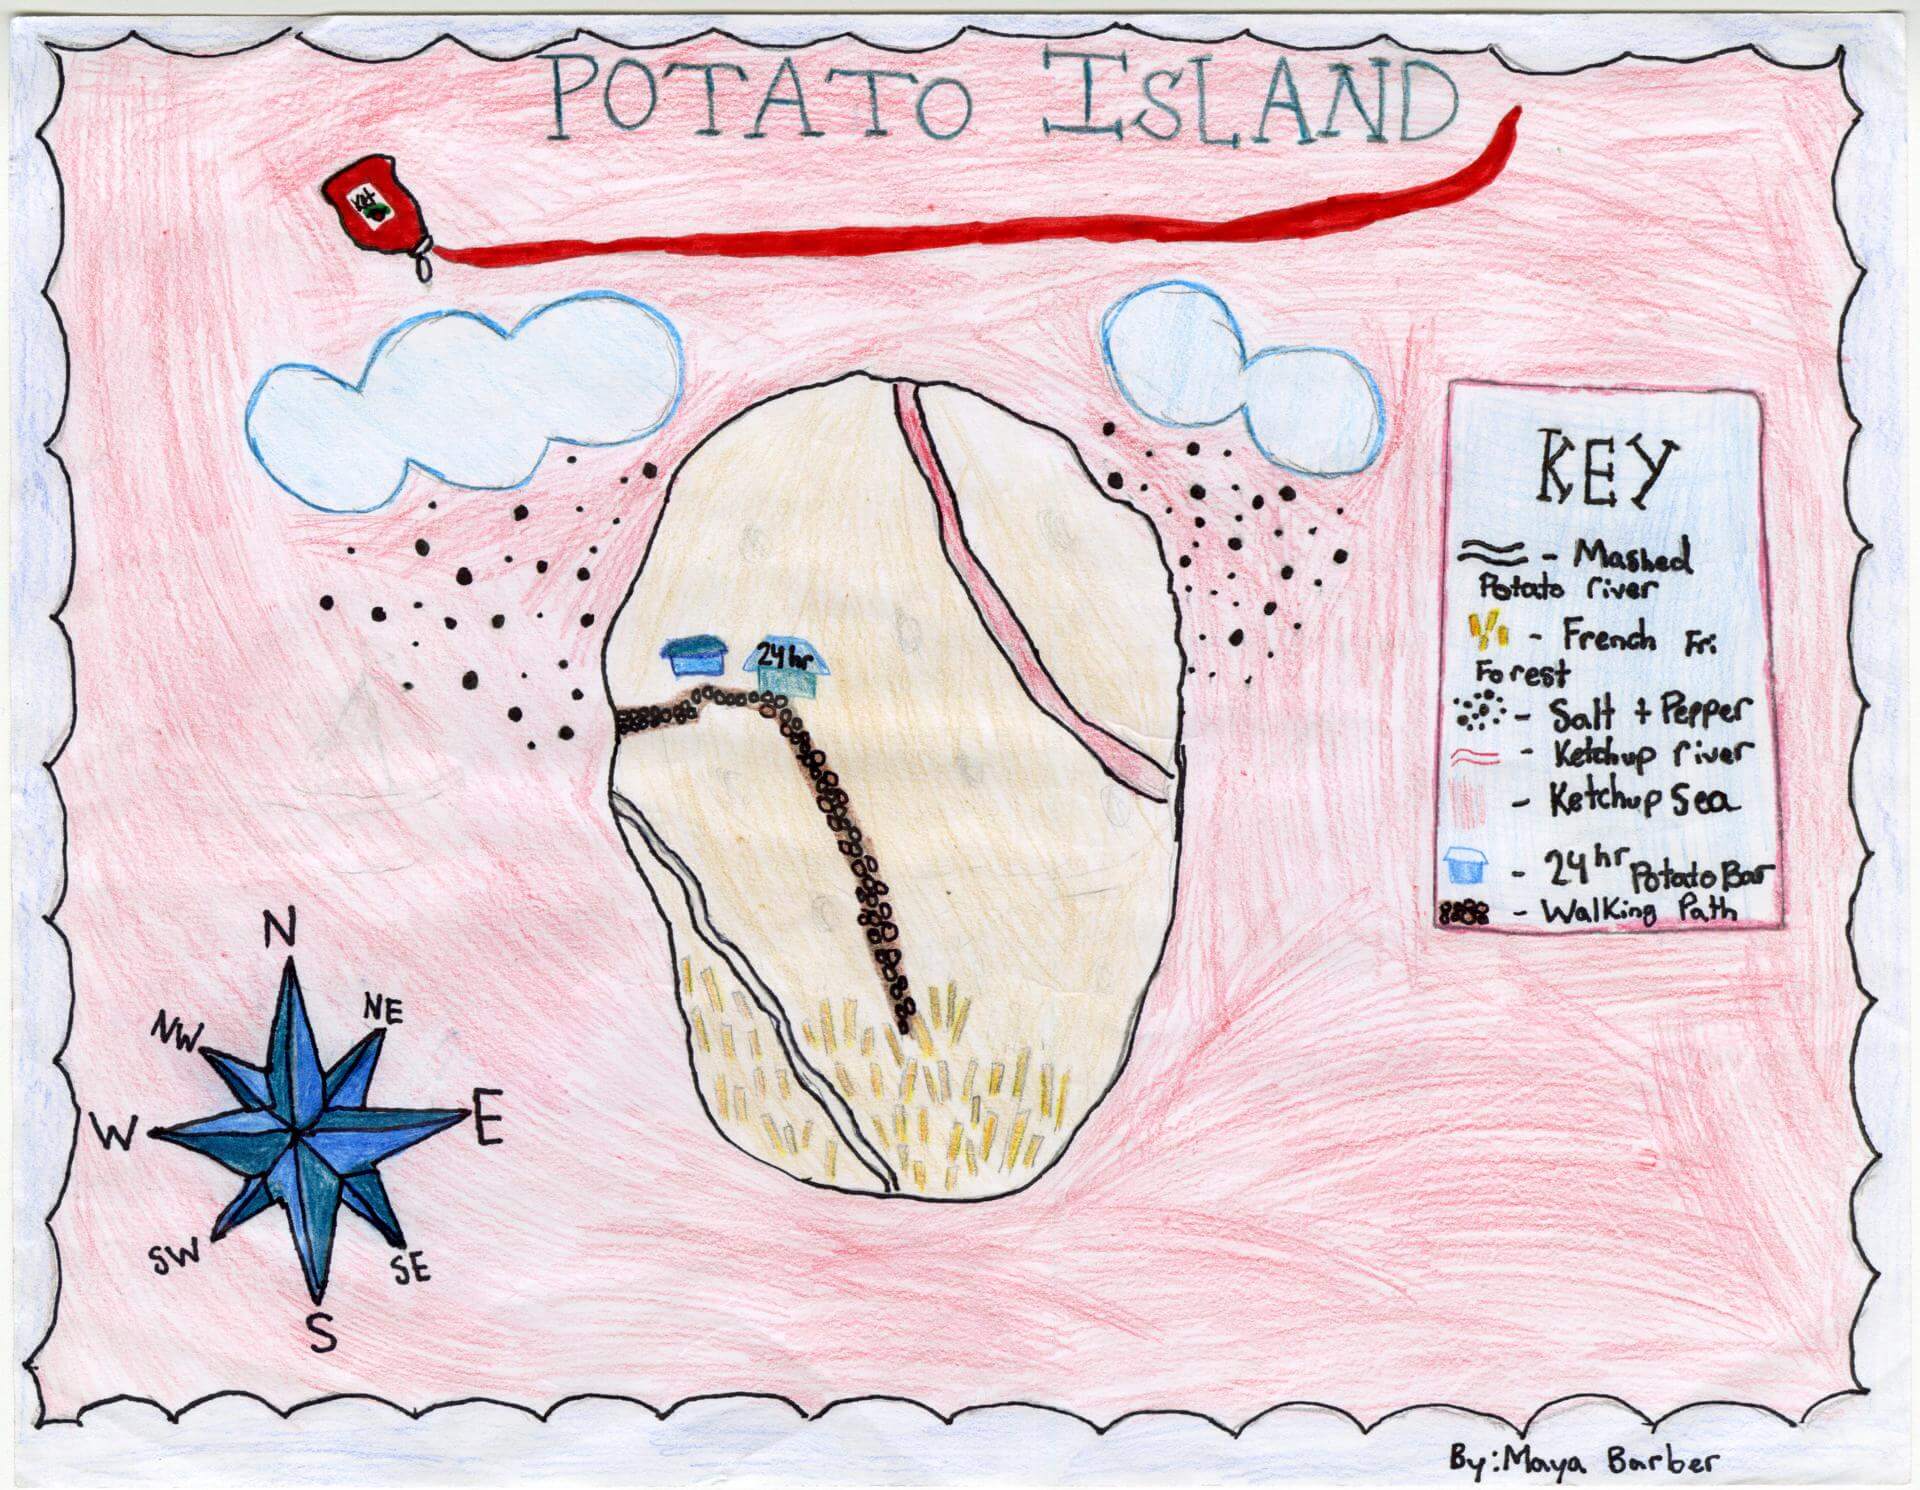 POTATO ISLAND
Ket
KEY
- Mashed
Potato river
- French Fri
Forest
- Salt + Pepper
- Ketchup river
- Ketchup Sea
- 24 hr Potato Bar
- Walking Path
24 hr
N
NW
NE
W
E
SW
SE
S
By: Maya Barber